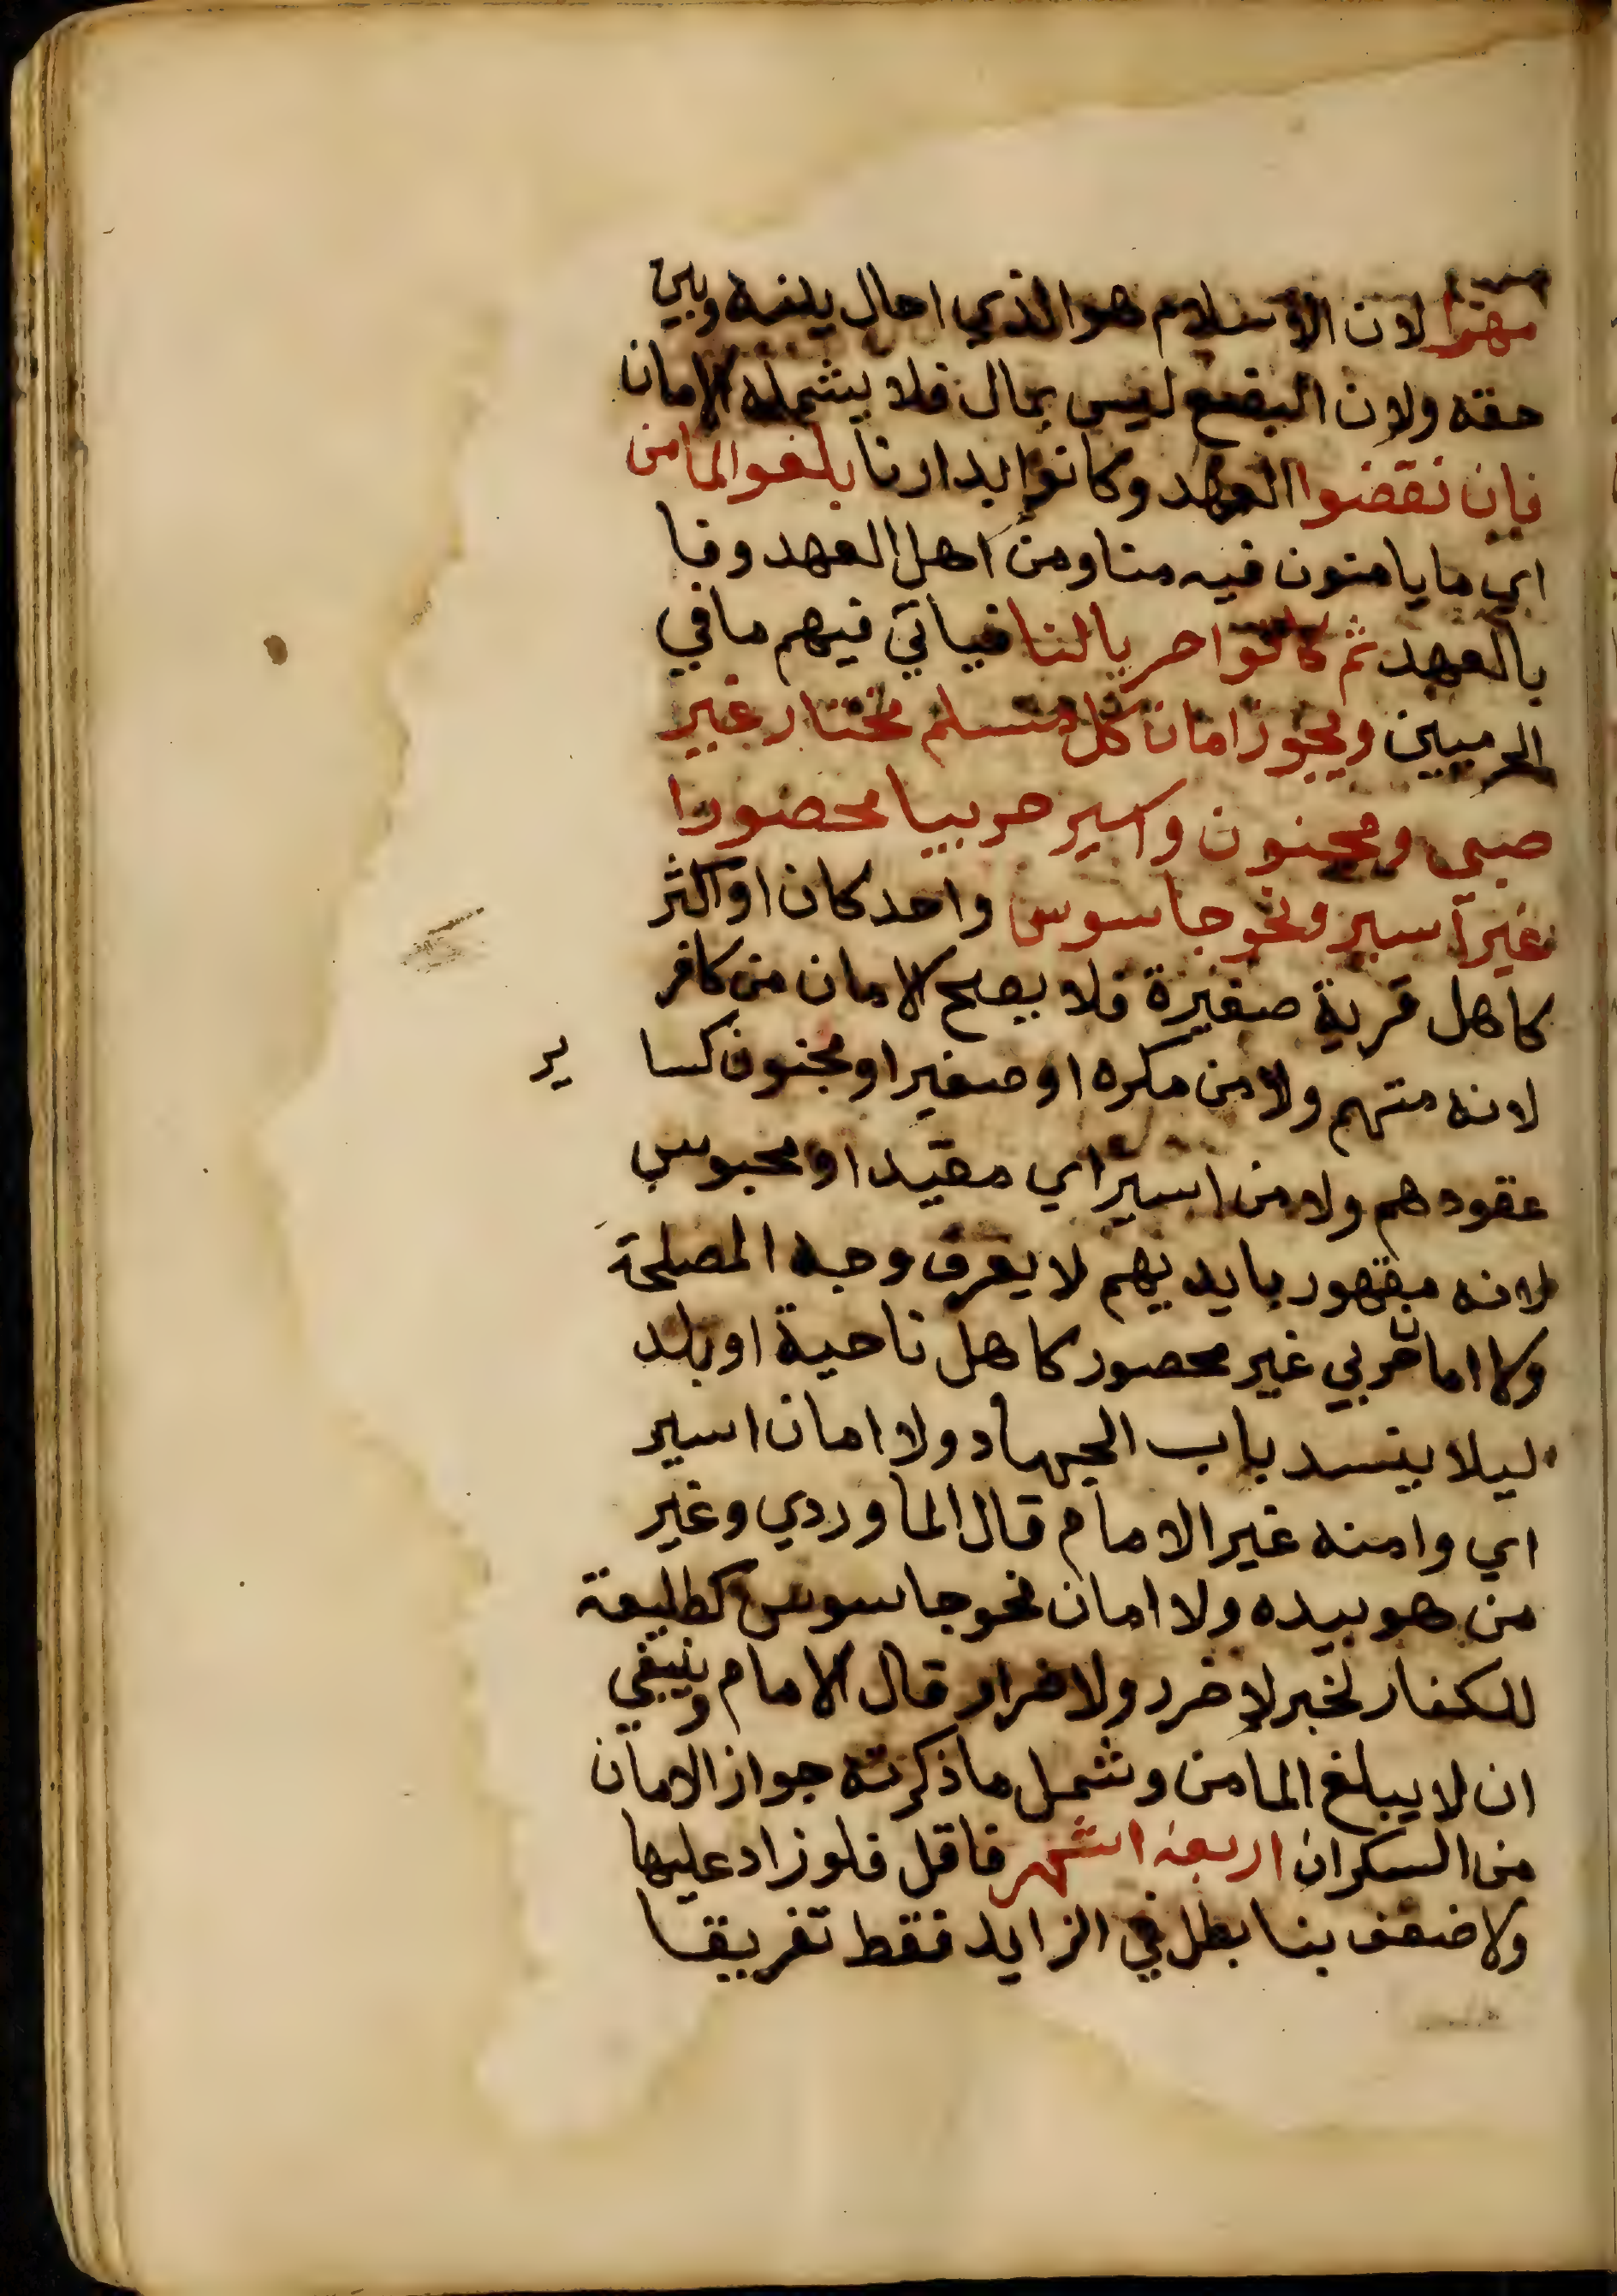 مهرا لان الاسلام هو الذي احال بينه وبين
حقه ولان البضع ليس بمال فلا يشمله الامان
فان نقضوا العهد وكانوا بدارنا بلغوا المامن
اي ما يامنون فيه منا ومن اهل العهد وفا
بالعهد ثم كانوا حربا لنا فياتي فيهم ما في
الحربيين ويجوز امان كل مسلم مختار غير
صبي ومجنون واسير حربيا محصورا
غير اسير ونحو جاسوس واحد كان او اكثر
كاهل قرية صغيرة فلا يصح الامان من كافر
لانه متهم ولا من مكره او صغير او مجنون كسا ير
عقودهم ولا من اسير اي مقيد او محبوس
لانه مقهور بايديهم لا يعرف وجه المصلحة
ولا امان حربي غير محصور كاهل ناحية او بلد
ليلا ينسد باب الجهاد ولا امان اسير
اي وامنه غير الامام قال الماوردي وغير
من هو بيده ولا امان نحو جاسوس كطليعة
للكفار لخبر لا ضرر ولا ضرار قال الامام وينبغي
ان لا يبلغ المامن وشمل ما ذكرته جواز الامان
من السكران اربعة اشهر فاقل فلو زاد عليها
ولا ضعف بنا بطل في الزايد فقط تفريقا